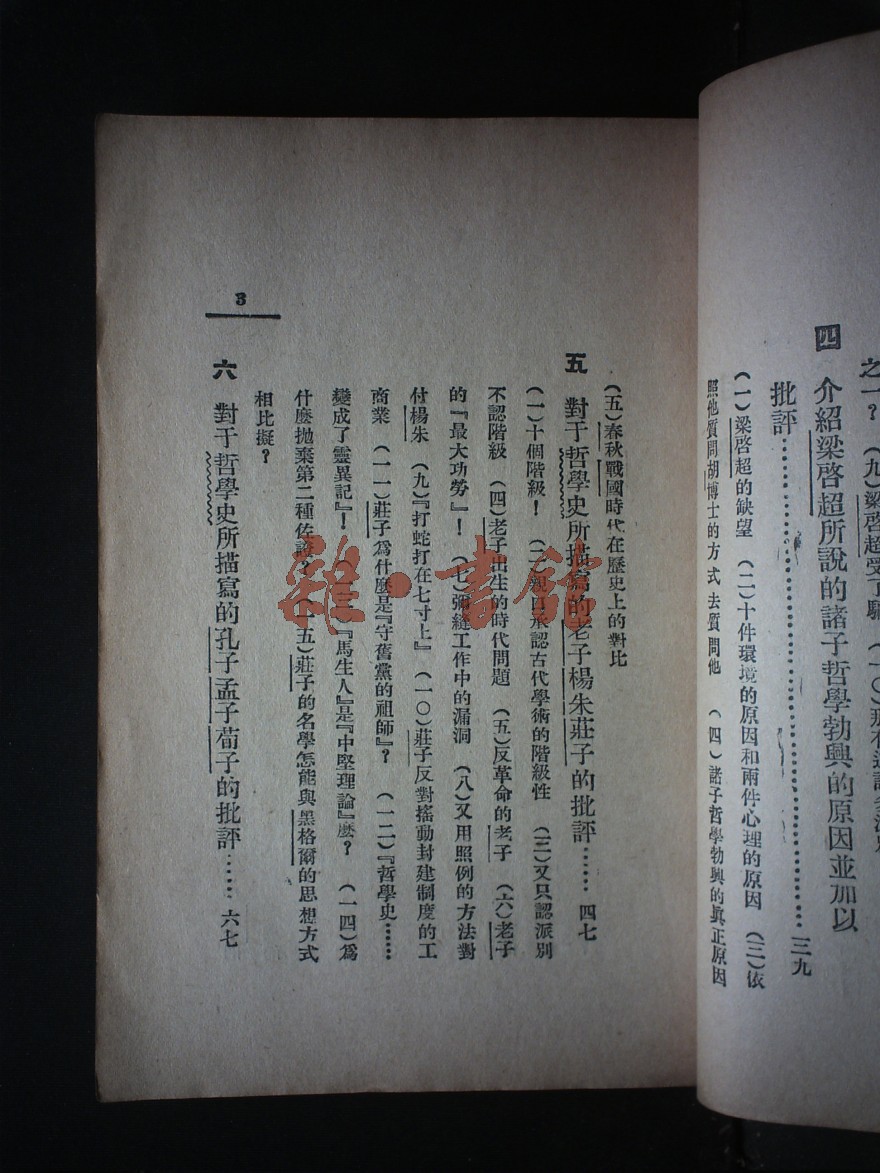 之一？　(九)梁啓超受了騙　(一〇)那有這許多
四　介紹梁啓超所說的諸子哲學勃興的原因並加以
批評……………………………………三九
(一)梁啓超的缺望　(二)十件環境的原因和兩件心理的原因　(三)依
照他質問胡博士的方式去質問他　(四)諸子哲學勃興的眞正原因
(五)春秋戰國時代在歷史上的對比
五　對于哲學史所描寫的老子楊朱莊子的批評……四七
(一)十個階級！　(二)親口承認古代學術的階級性　(三)又只認派別
不認階級　(四)老子出生的時代問題　(五)反革命的老子　(六)老子
的『最大功勞』！　(七)彌縫工作中的漏洞　(八)又用照例的方法對
付楊朱　(九)『打蛇打在七寸上』　(一〇)莊子反對搖動封建制度的工
商業　(一一)莊子爲什麼是『守舊黨的祖師』？　(一二)『哲學史……
變成了靈異記』！　(一三)『馬生人』是『中堅理論』麼？　(一四)爲
什麼拋棄第二種佐證？　(一五)莊子的名學怎能與黑格爾的思想方式
相比擬？
六　對于哲學史所描寫的孔子孟子荀子的批評……六七
3
雜·書館